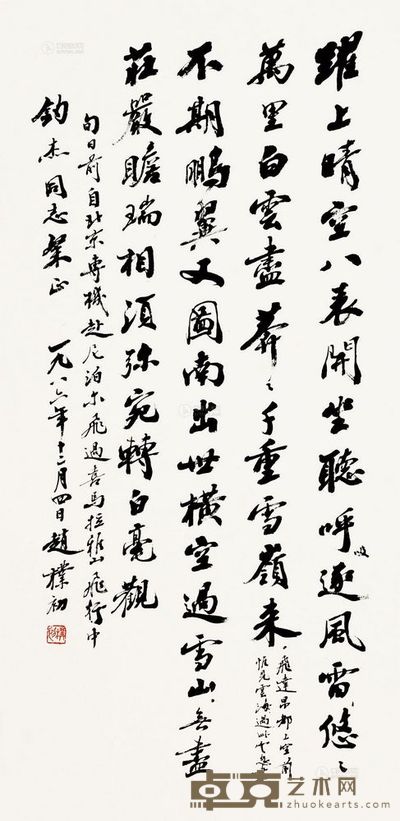 躍上晴空八表開坐聽呼吸逐風雷悠々
萬里白雲盡莽々千重雪嶺来
飛達昌都上空前
惟見雲海過此
不期鵬翼又圖南出世橫空過雪山無盡
莊嚴瞻瑞相須弥宛轉白毫觀
旬日前自北京専機赴尼泊尔飛過喜馬拉雅山飛行中
鈞杰同志粲正
一九八六年十二月四日趙樸初
卓克艺术网
zhuokearts.com